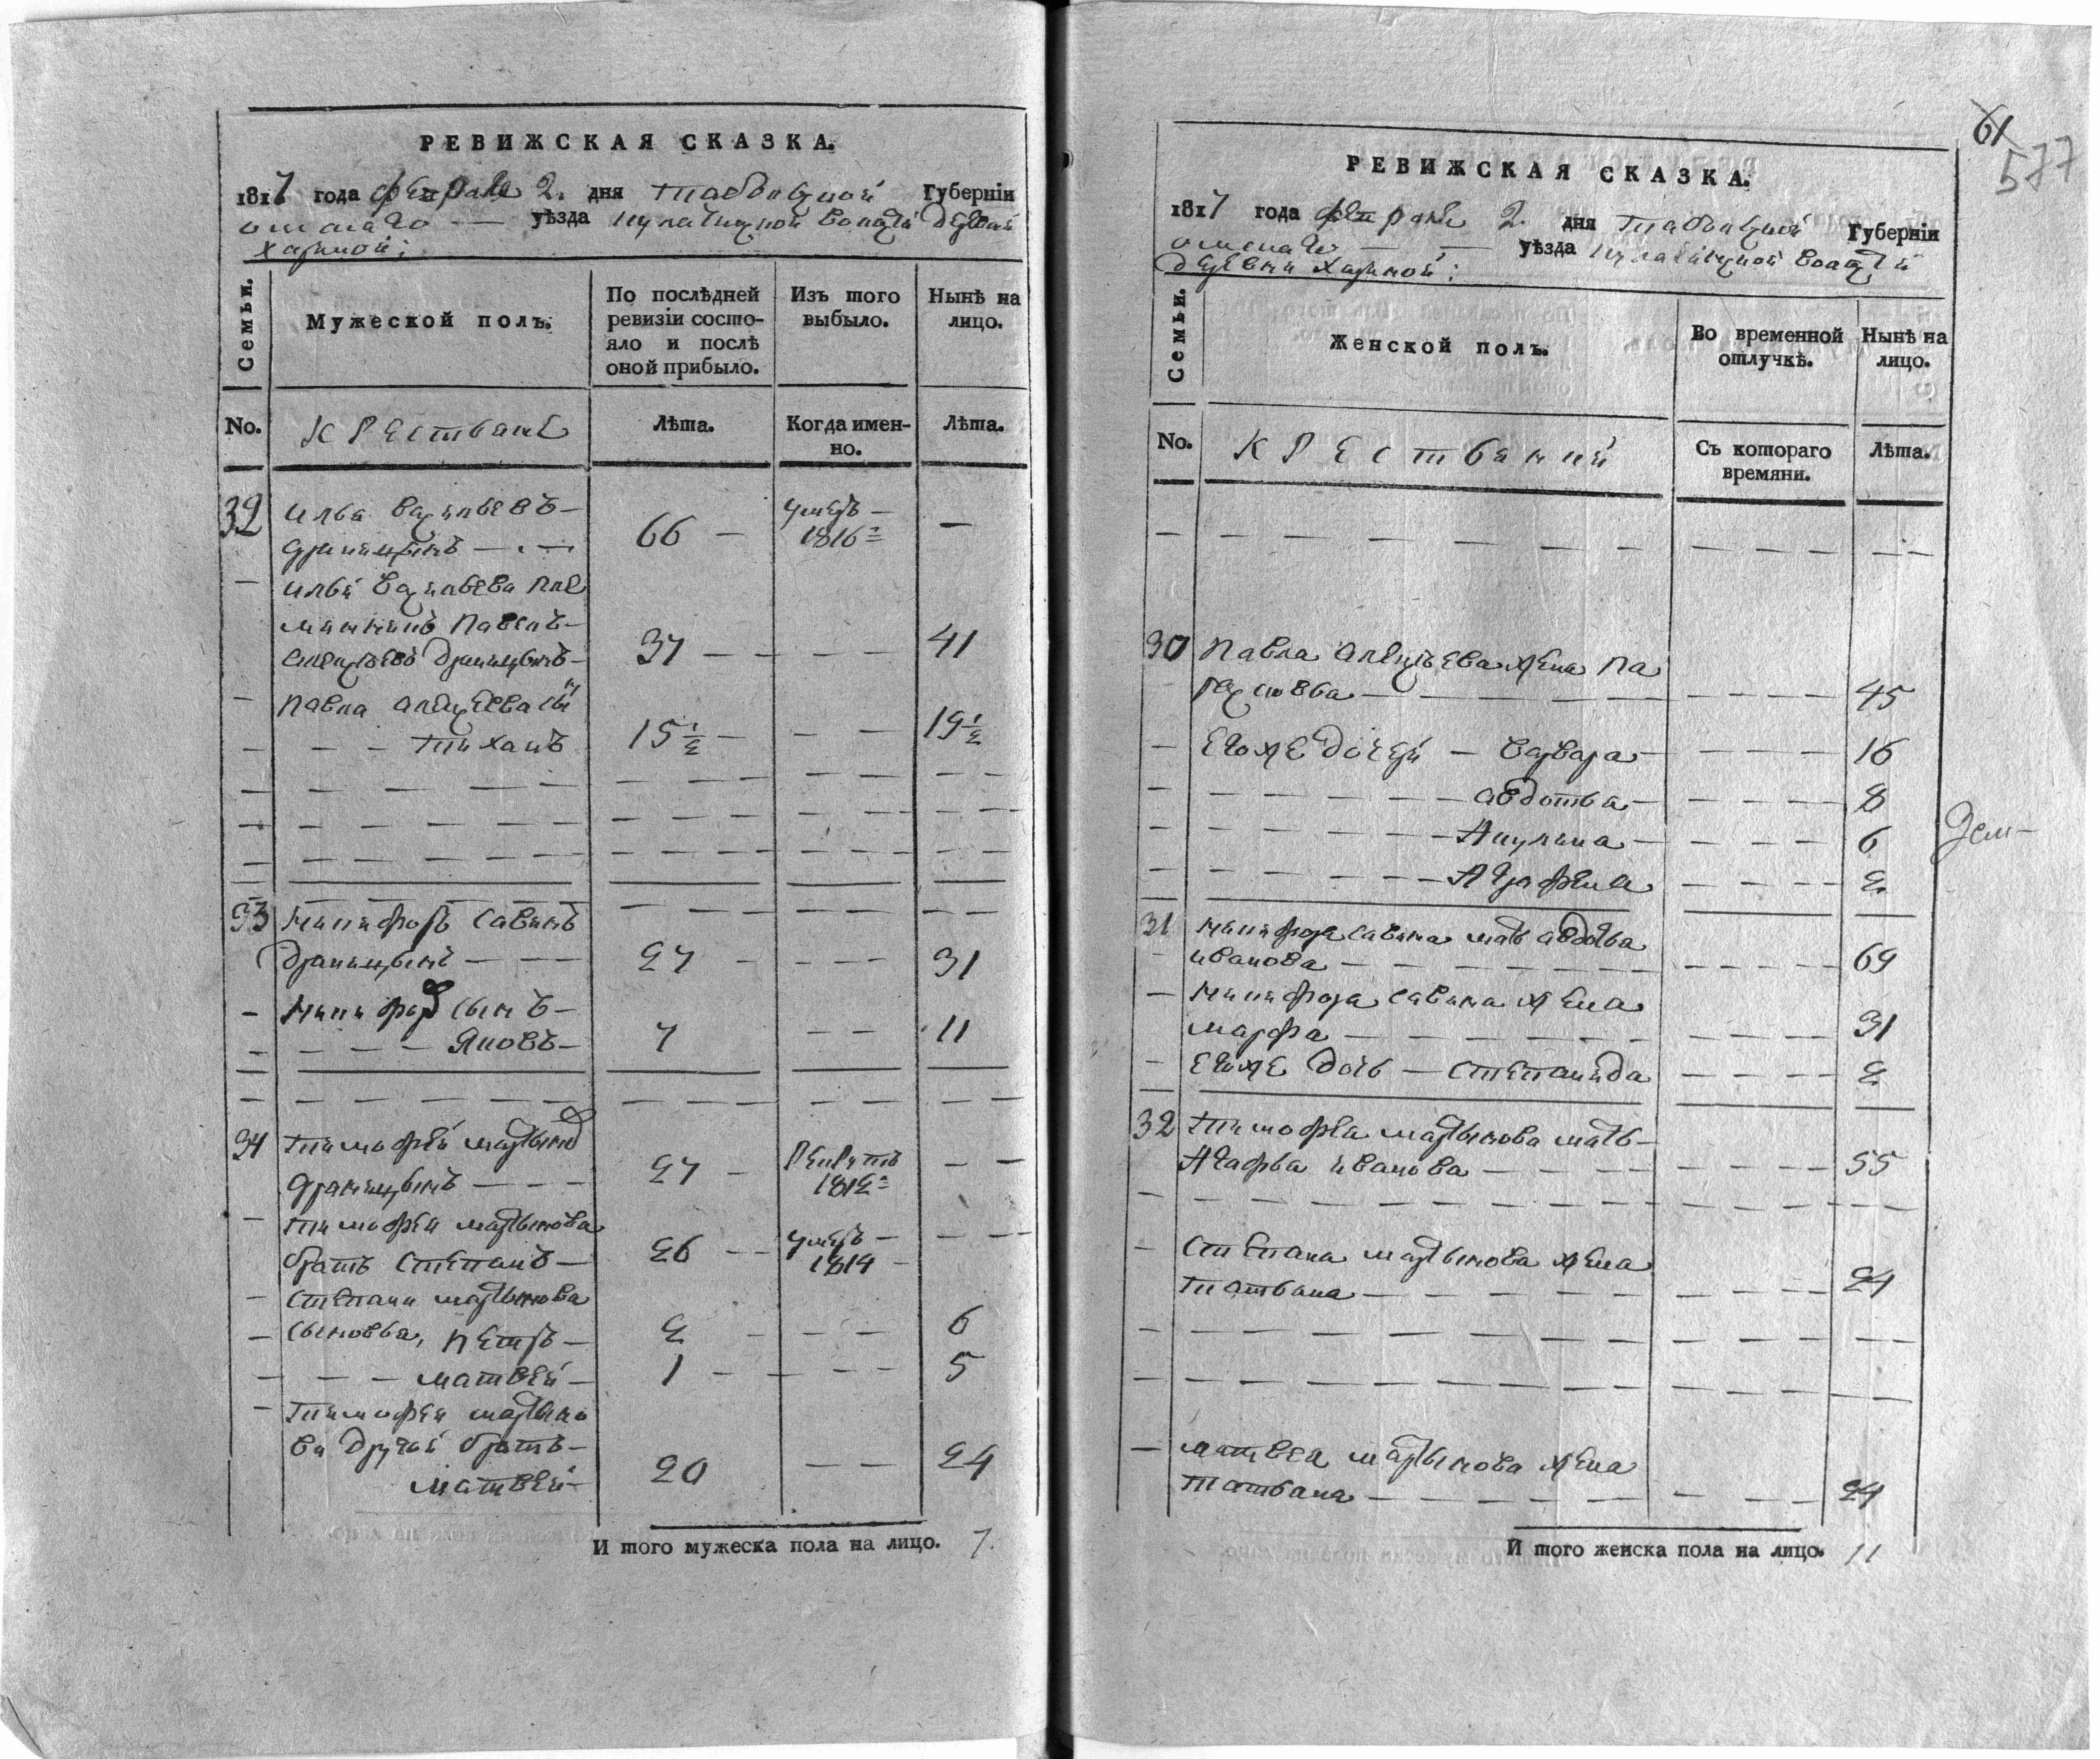 РЕВИЖСКАЯ СКАЗКА.
1817 года февраля 2. дня тобольской Губерніи
омскаго — уѣзда кулачинской волости деревни
Хариной:
Семьи.
Мужеской полъ.
По послѣдней ревизіи состояло и послѣ оной прибыло.
Изъ того выбыло.
Нынѣ на лицо.
No.
крестьяне
Лѣта.
Когда именно.
Лѣта.
32 илья васильевъ —
66 — умеръ — 1816 = —
— ильи васильева пле
мянникъ павелъ —
37 — — — — 41
— павла алексеева сынъ
— — — тиханъ
15 1/2 — — — 19 1/2
33 никифоръ савинъ
27 — — — — 31
— никифора сынъ —
— — — — яковъ —
7 — — 11
34 тимофей мартыновъ
27 — рекрутъ 1812 = — —
— тимофея мартынова
братъ степанъ —
26 — — умеръ — 1814 — — —
— степана мартынова
— сыновья, петръ —
2 — — — 6
— — — матвей —
1 — — — — 5
— тимофея мартыно
ва другой братъ —
матвей —
20 — — 24
И того мужеска пола на лицо. 7.
61
577
РЕВИЖСКАЯ СКАЗКА.
1817 года февраля 2. дня тобольской Губерніи
омскаго — — уѣзда кулачинской волости
деревни Хариной:
Семьи.
Женской полъ.
Во временной отлучкѣ.
Нынѣ на лицо.
No.
крестьянки
Съ котораго времяни.
Лѣта.
30 павла алексеева жена па
расковья — — — — — — 45
— ево же дочери — варвара — — — — 16
— — — — — — — авдотья — — — — — 8
— — — — — — — Акулина — — — — 6
— — — — — — — Аграфена — — — — 2
31 никифора савина мать авдотья
— иванова — — — — — — 69
— никифора савина жена
марфа — — — — — — 31
— ево же дочь — степанида — — — 2
32 тимофея мартынова мать —
Агафья иванова — — — — — 55
— степана мартынова жена
татьяна — — — — — — 24
— матвея мартынова жена
татьяна — — — — — — 24
И того женска пола на лицо. 11